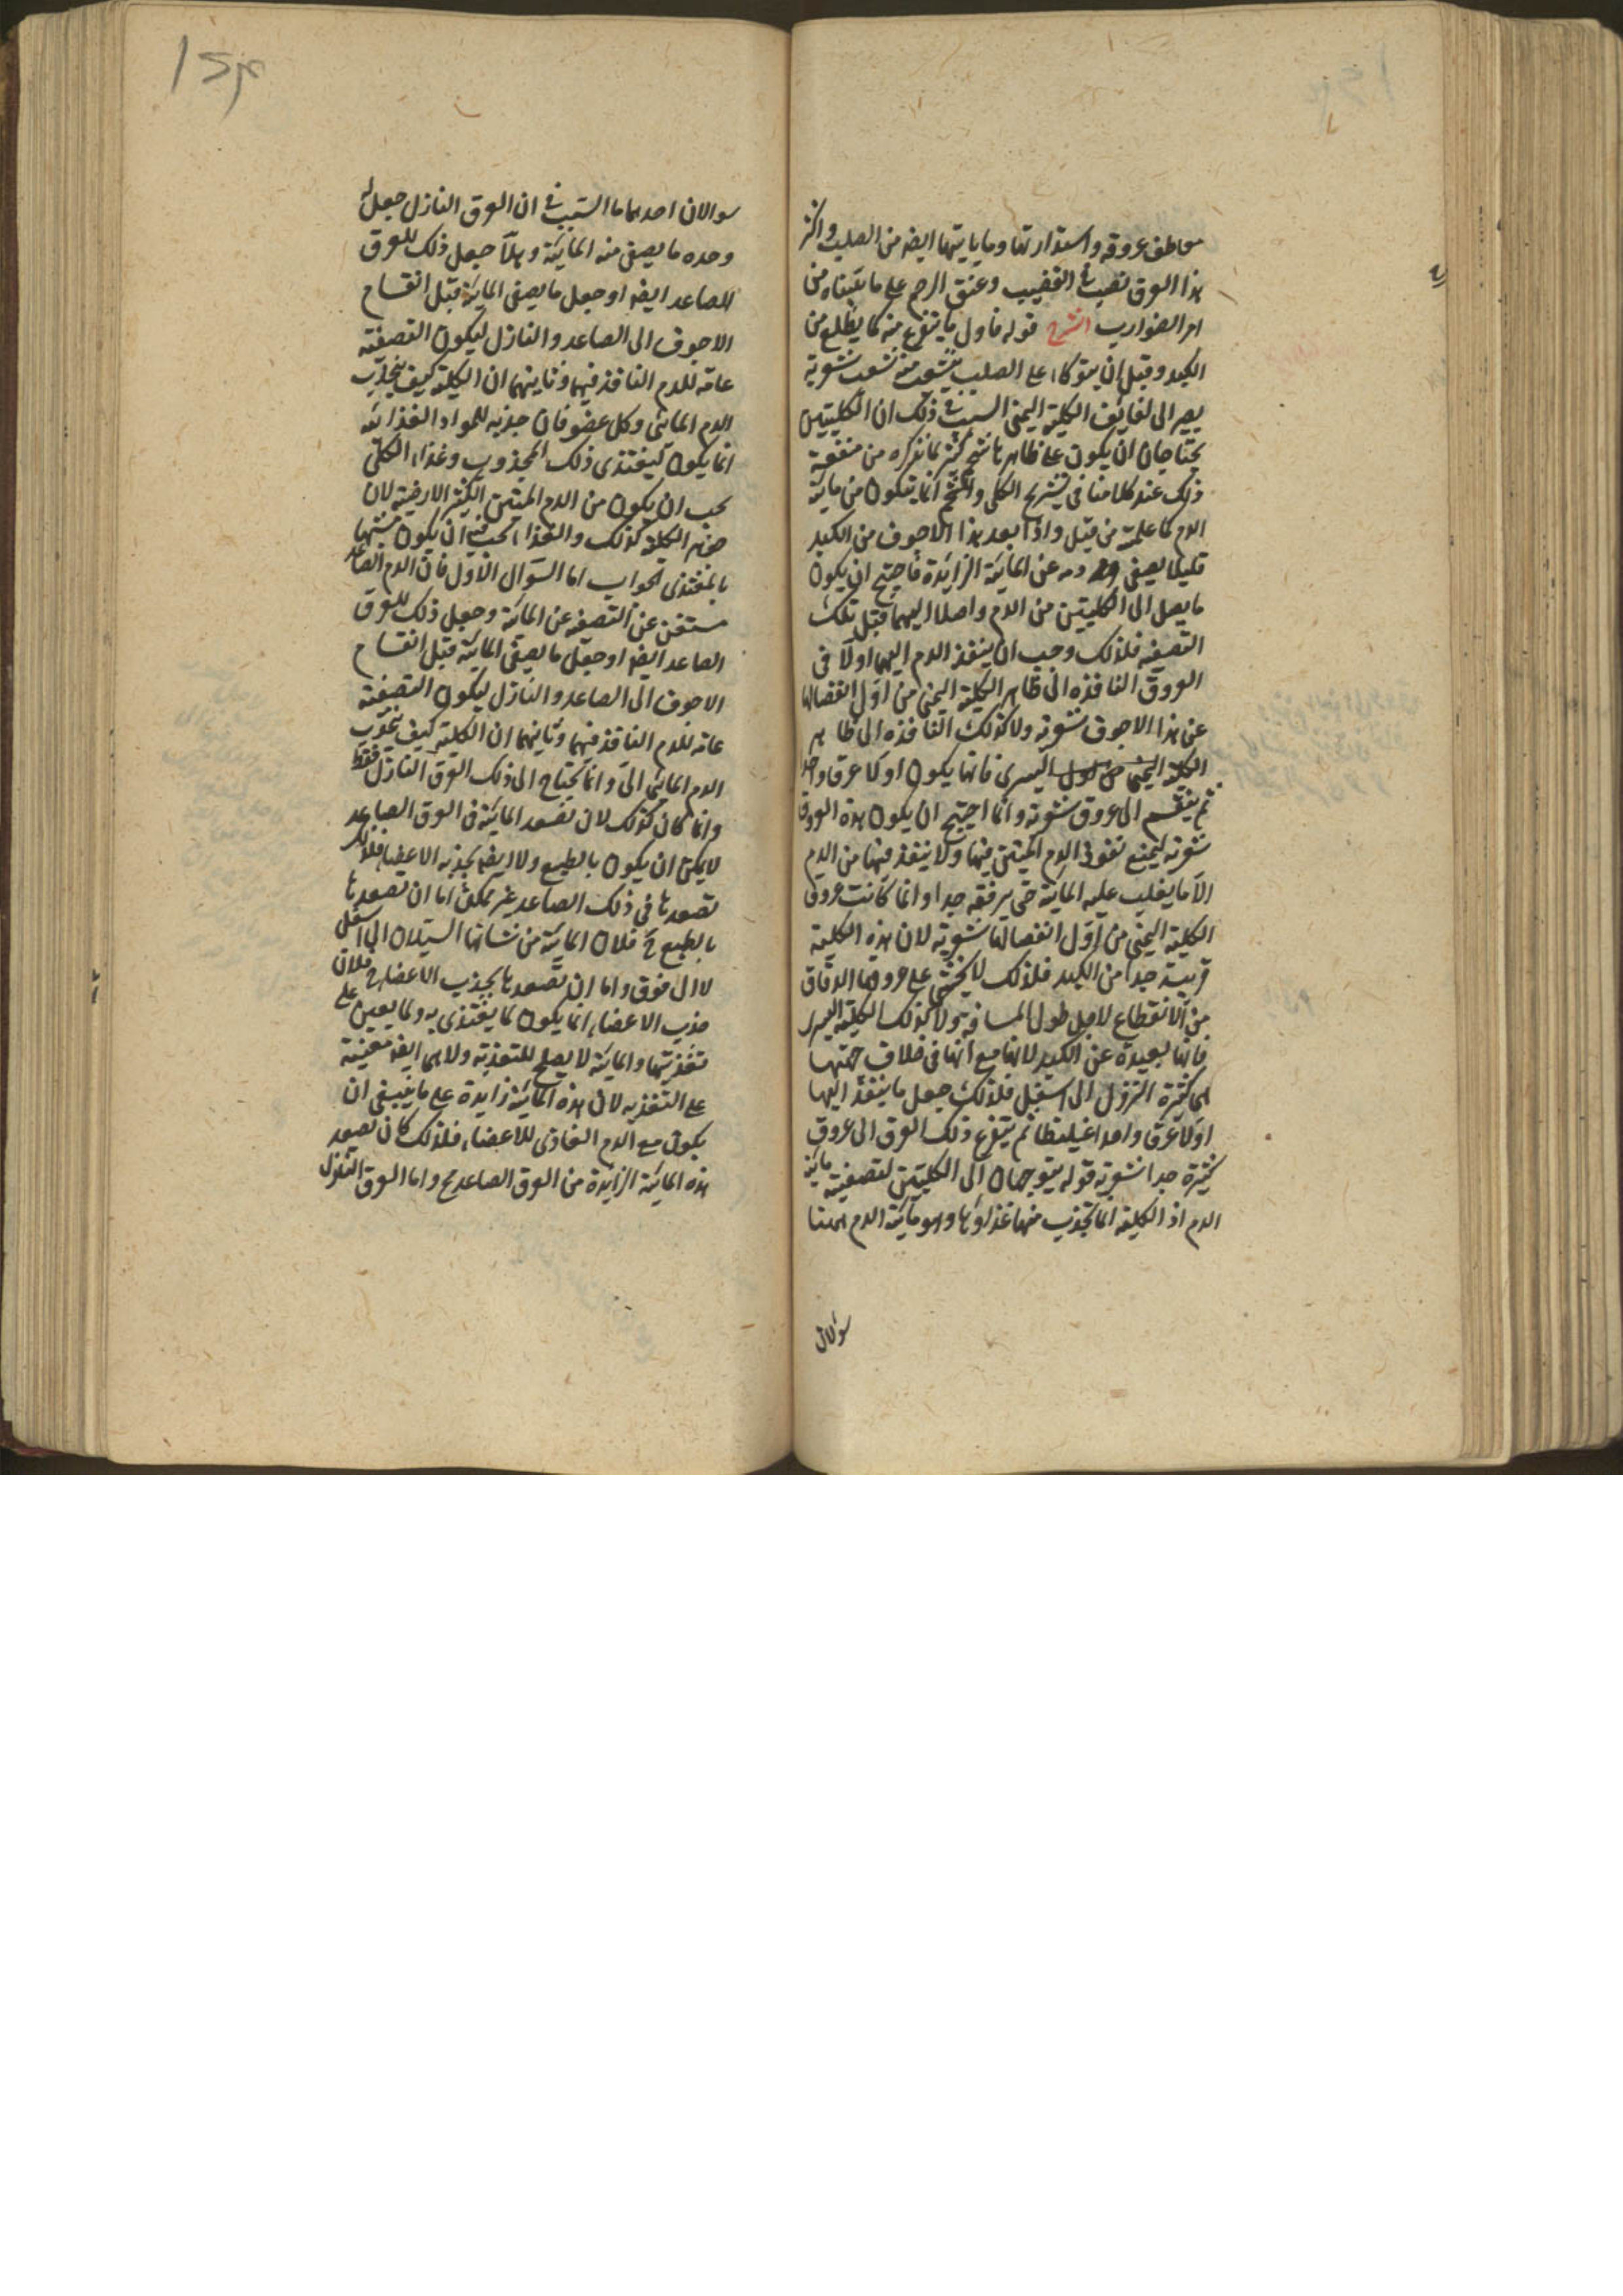 معاطف عروقه واستدارتها وما يأتيها ايضه من الصلب واكثر
هذا العرق نصيب فى القضيب وعنق الرحم على ما بيّناه من
امر الضوارب الشرح قوله فاول ما يتفرع منه كما يطلع من
الكبد وقبل ان يتوكاء على الصلب يتشعب منه شعب شعرية
يصير الى لفايف الكلية اليمنى السبب فى ذلك ان الكليتين
يحتاجان ان يكون على ظاهرهما شحم كثير لما نذكره من منفعة
ذلك عند كلامنا فى تشريح الكلى والشحم انما يتكون من مائية
الدم كما علمته من قبل واذا بعد هذا الاجوف من الكبد
قليلا يصفى دمه عن المائية الزايدة فاحتيج ان يكون
ما يصل الى الكليتين من الدم واصلا اليهما قبل تلك
التصفيه فلذلك وجب ان ينفذ الدم اليهما اولا فى
العروق النافذه الى ظاهر الكلية اليمنى من اول انفصالها
عن هذا الاجوف شعرية ولا كذلك النافذه الى ظاهر
الكلية اليسرى فانها يكون اولا عرقا واحدا
ثم ينقسم الى عروق شعرية وانما احتيج ان يكون هذه العروق
شعرية ليمنع نفوذ الدم المتين فيها ولا ينفذ فيها من الدم
الا ما يغلب عليه المائية حتى يرققه جدا وانما كانت عروق
الكلية اليمنى من اول انفصالها شعرية لان هذه الكلية
قريبة جدا من الكبد فلذلك لا يخشى على عروقها الدقاق
من الانقطاع لاجل طول المسافة ولا كذلك الكلية اليسرى
فانها بعيدة عن الكبد لانها مع انها فى خلاف جهتها
هى كثيرة النزول الى اسفل فلذلك جعل ما ينفذ اليها
اولا عرقا واحدا غليظا ثم يتفرع ذلك العرق الى عروق
كثيرة جدا شعرية قوله يتوجهان الى الكليتين لتصفية مائية
الدم اذ الكلية انما تجذب منها غذاؤها وهو مائية الدم ههنا
سؤالان
سوالان احدهما ما السبب فى ان العرق النازل جعل له
وحده ما يصفى منه المائية وهلّا جعل ذلك للعرق
الصاعد ايضه او جعل ما يصفى المائية قبل انقسام
الاجوف الى الصاعد والنازل ليكون التصفية
عامة للدم النافذ فيهما وثانيهما ان الكلية كيف تجذب
الدم المائى وكل عضو فان جذبه للمواد الغذائه
انما يكون ليغتذى ذلك المجذوب وغذاء الكلى
يجب ان يكون من الدم المتين الكثير الارضية لان
جوهر الكلية كذلك والغذاء يجب فيه ان يكون شبيها
بالمغتذى الجواب اما السؤال الاول فان الدم الصاعد
مستغن عن التصفيه عن المائية وجعل ذلك للعرق
الصاعد ايضه او جعل ما يصفى المائية قبل انقسام
الاجوف الى الصاعد والنازل ليكون التصفية
عامة للدم النافذ فيهما وثانيهما ان الكلية كيف تجذب
الدم المائى الى وانما يحتاج الى ذلك العرق النازل فقط
وانما كان كذلك لان تصعد المائية فى العرق الصاعد
لا يمكن ان يكون بالطبع ولا ايضه بجذب الاعضاء فلذلك
تصعدها فى ذلك الصاعد غير ممكن اما ان تصعدها
بالطبع فلان المائية من شانها السيلان الى اسفل
لا الى فوق واما ان تصعدها بجذب الاعضاء فلان
جذب الاعضاء انما يكون لما يغتذى به ولما يعين على
تغذيتها والمائية لا يصلح للتغذية ولا هى ايضه معينة
على التغذيه لان هذه المائية زايدة على ما ينبغى ان
يكون مع الدم الغاذى للاعضاء فلذلك كان تصعد
هذه المائية الزايدة من العرق الصاعد مح واما العرق النازل